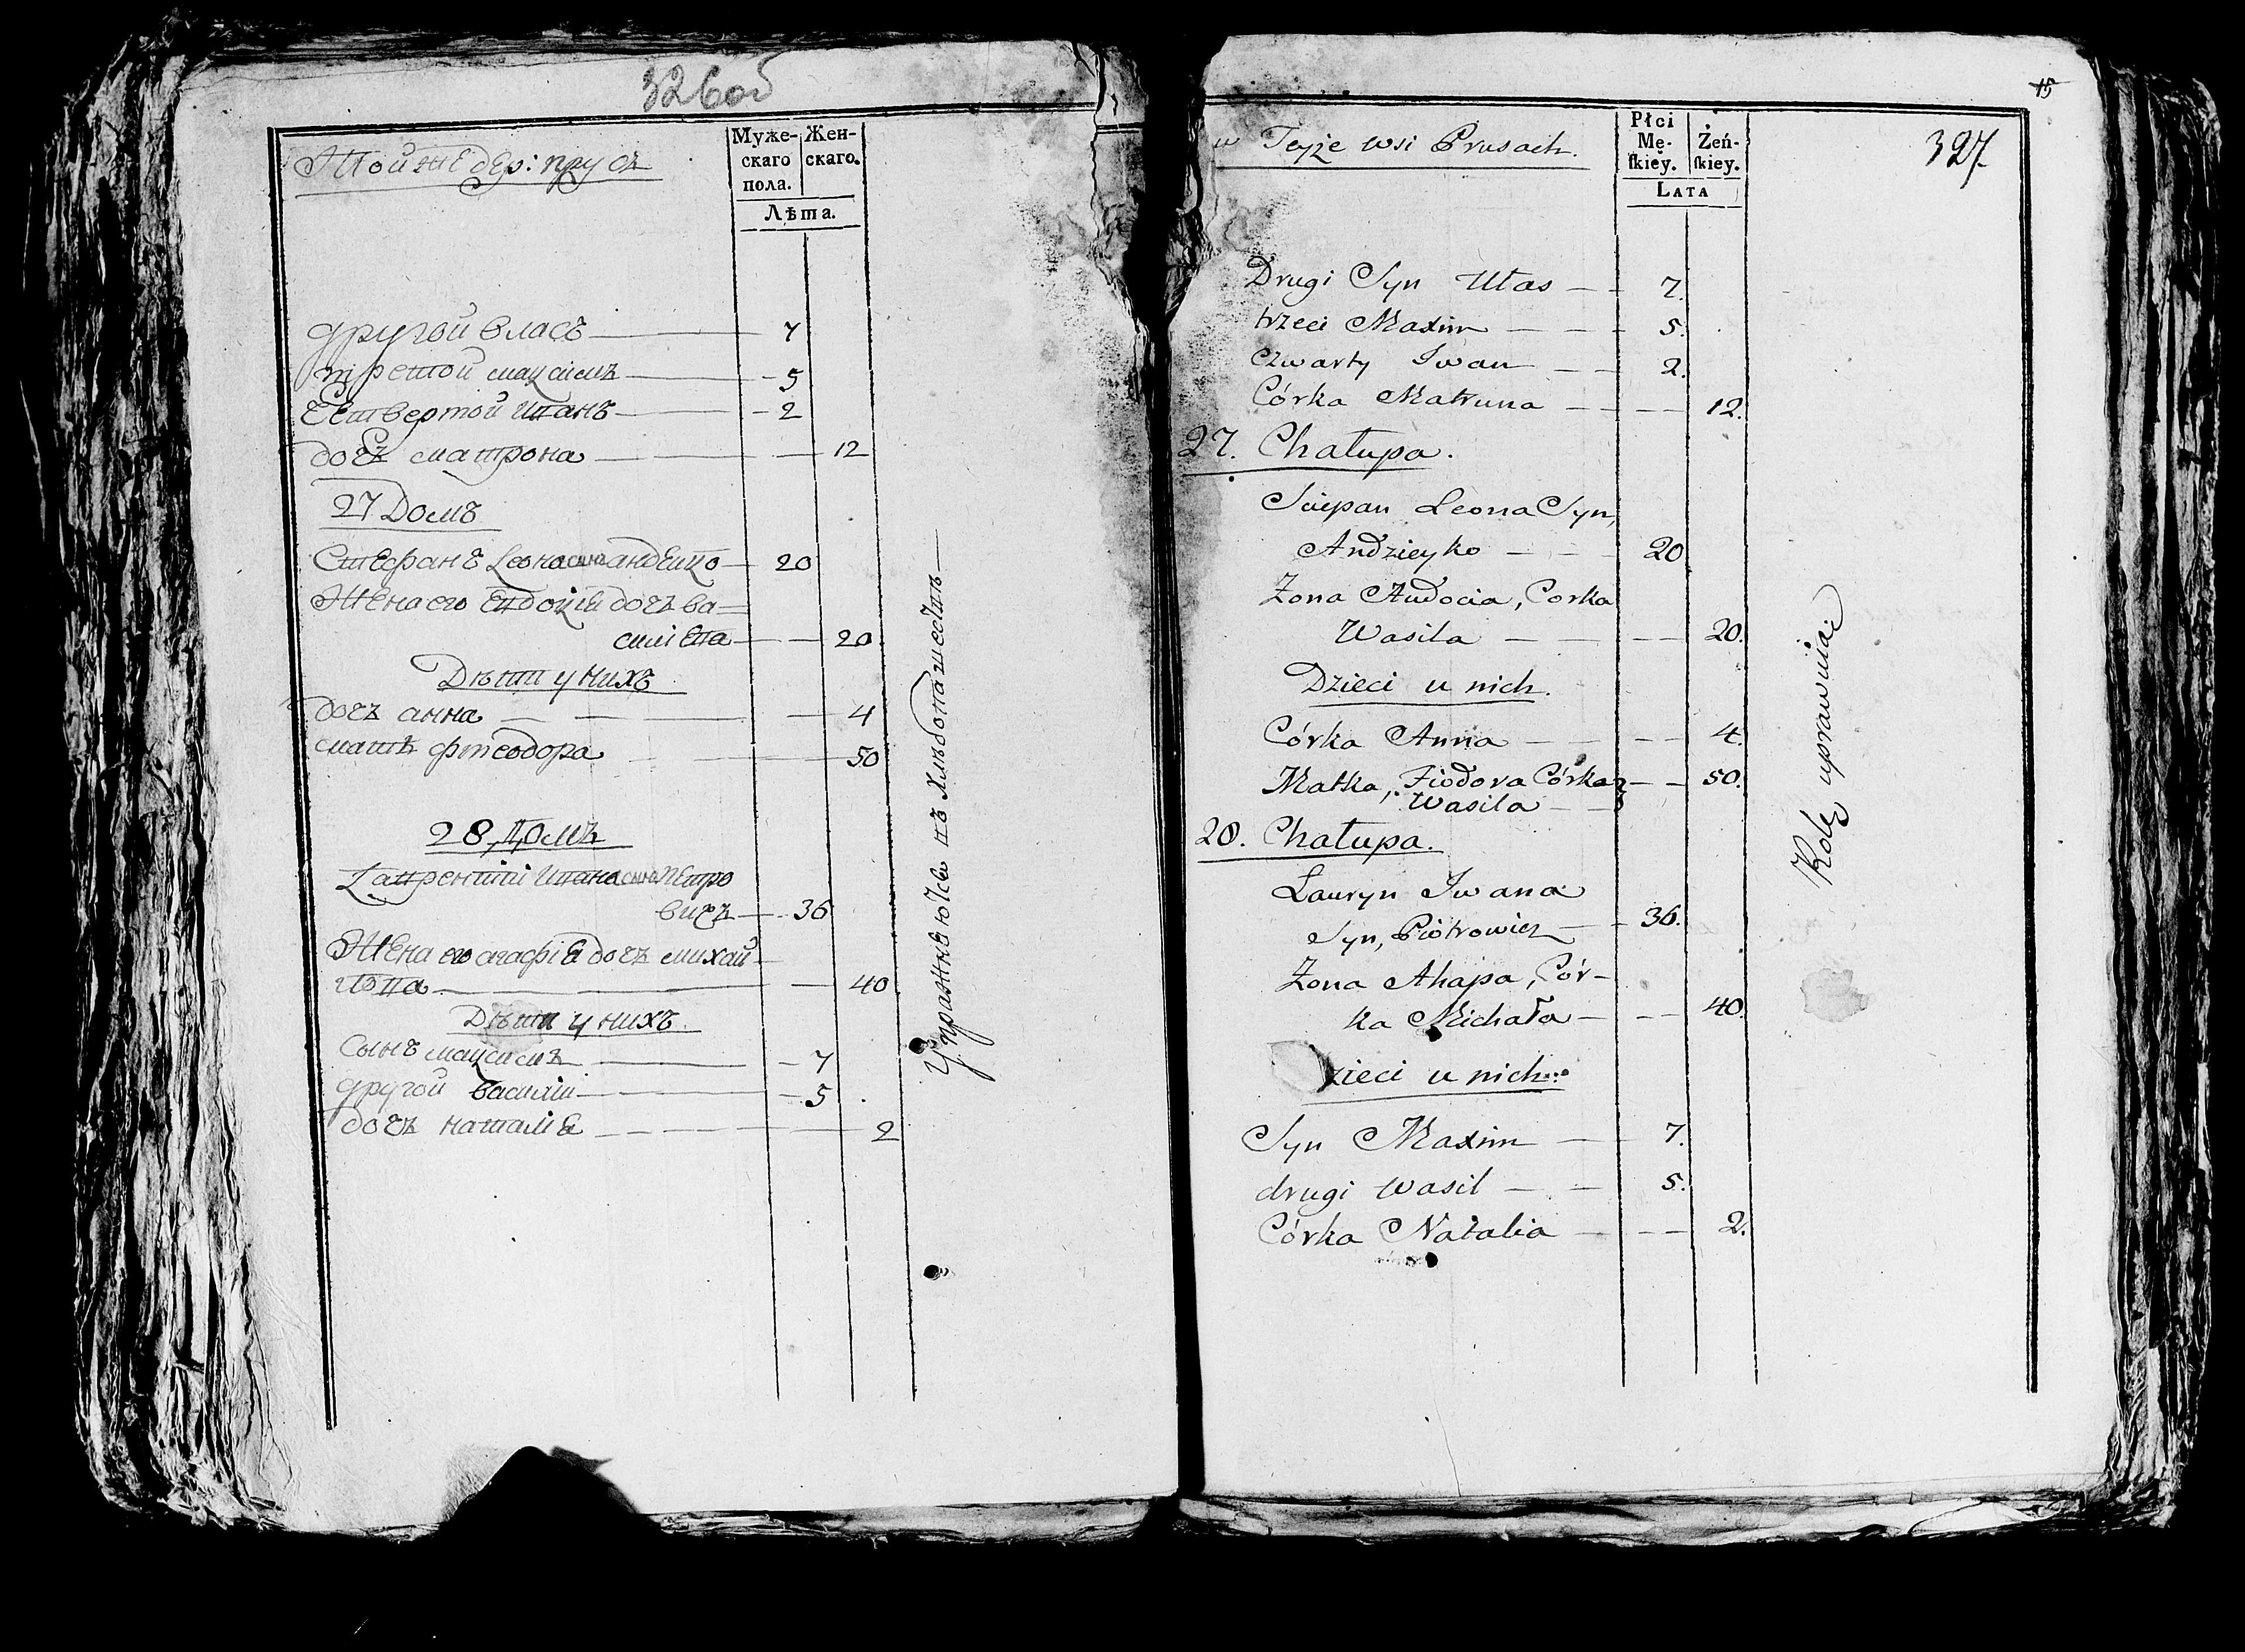 326об
Мужескаго пола.
Женскаго.
Лѣта.
Той же дер: прусъ
другой власъ — 7
третой мақсимъ — 5
Четвертой иванъ — 2
дочъ матрона — 12
27 Домъ
Стефанъ Леона сынъ андейко — 20
Жена его Евдокіѣ дочъ ва=
силіева — 20
Дѣти у нихъ
дочъ анна — 4
матъ фтеодора — 50
28, Домъ
Лаврентій Ивана сынъ Петро
вичъ — 36
Жена его агафіѣ дочъ михай
лова — 40
Дѣти у нихъ
Сынъ мақсимъ — 7
другой василій — 5
дочъ наталіѣ — 2
Упражнѣючься въ хлѣбопашествѣ
15
327
Płci
Mę-
ſkiey.
Żeń-
ſkiey.
LATA
w Teyże wsi Prusach.
Drugi Syn Ułas — 7.
trzeci Maxim — 5.
czwarty Iwan — 2.
Córka Matruna — 12.
27. Chałupa.
Sciepan Leona Syn,
Andzieyko — 20
Żona Audocia, Corka
Wasila — 20.
Dzieci u nich.
Córka Anna — 4.
Matka, Fiodora Córka — 50.
Wasila
28. Chałupa.
Lauryn Iwana
Syn, Piotrowicz — 36.
Żona Ahapa, Cór-
ka Michała — 40.
zieci u nich.
Syn Maxim — 7.
drugi Wasil — 5.
Córka Natalia — 2.
Rolę uprawuią